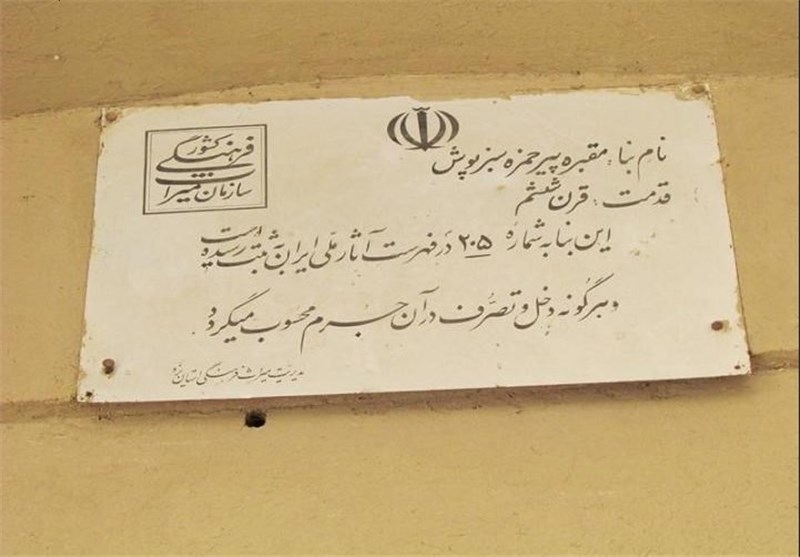 سازمان میراث
فرهنگی کشور
نام بنا: مقبره پیر حمزه سبزپوش
قدمت: قرن ششم
این بنا به شماره ۲۰۵ در فهرست آثار ملی ایران به ثبت رسیده است
و هرگونه دخل و تصرّف در آن جرم محسوب میگردد
مدیریت میراث فرهنگی استان یزد